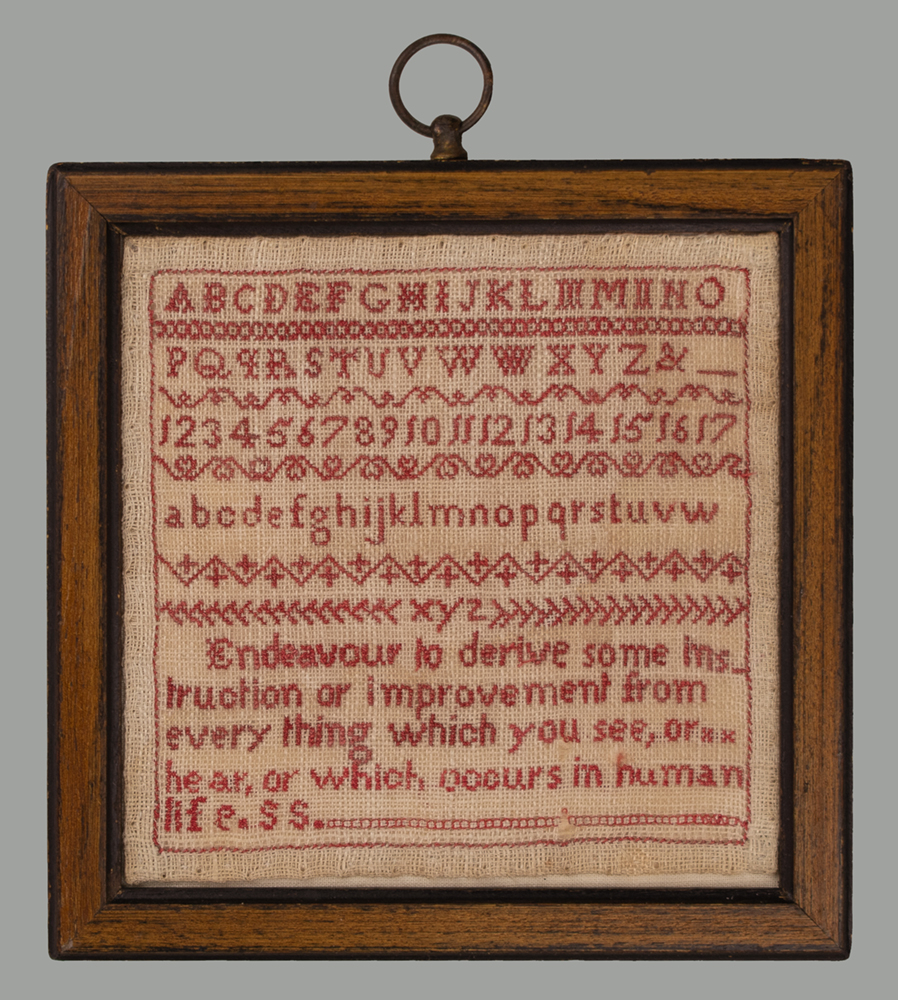 ABCDEFGHIJKLMMNNO
PQRRSTUVWWXYZ&_
1234567891011121314151617
abcdefghijklmnopqrstuvw
xyz
Endeavour to derive some ins_
truction or improvement from
every thing which you see, or
hear, or which occurs in human
life. SS.